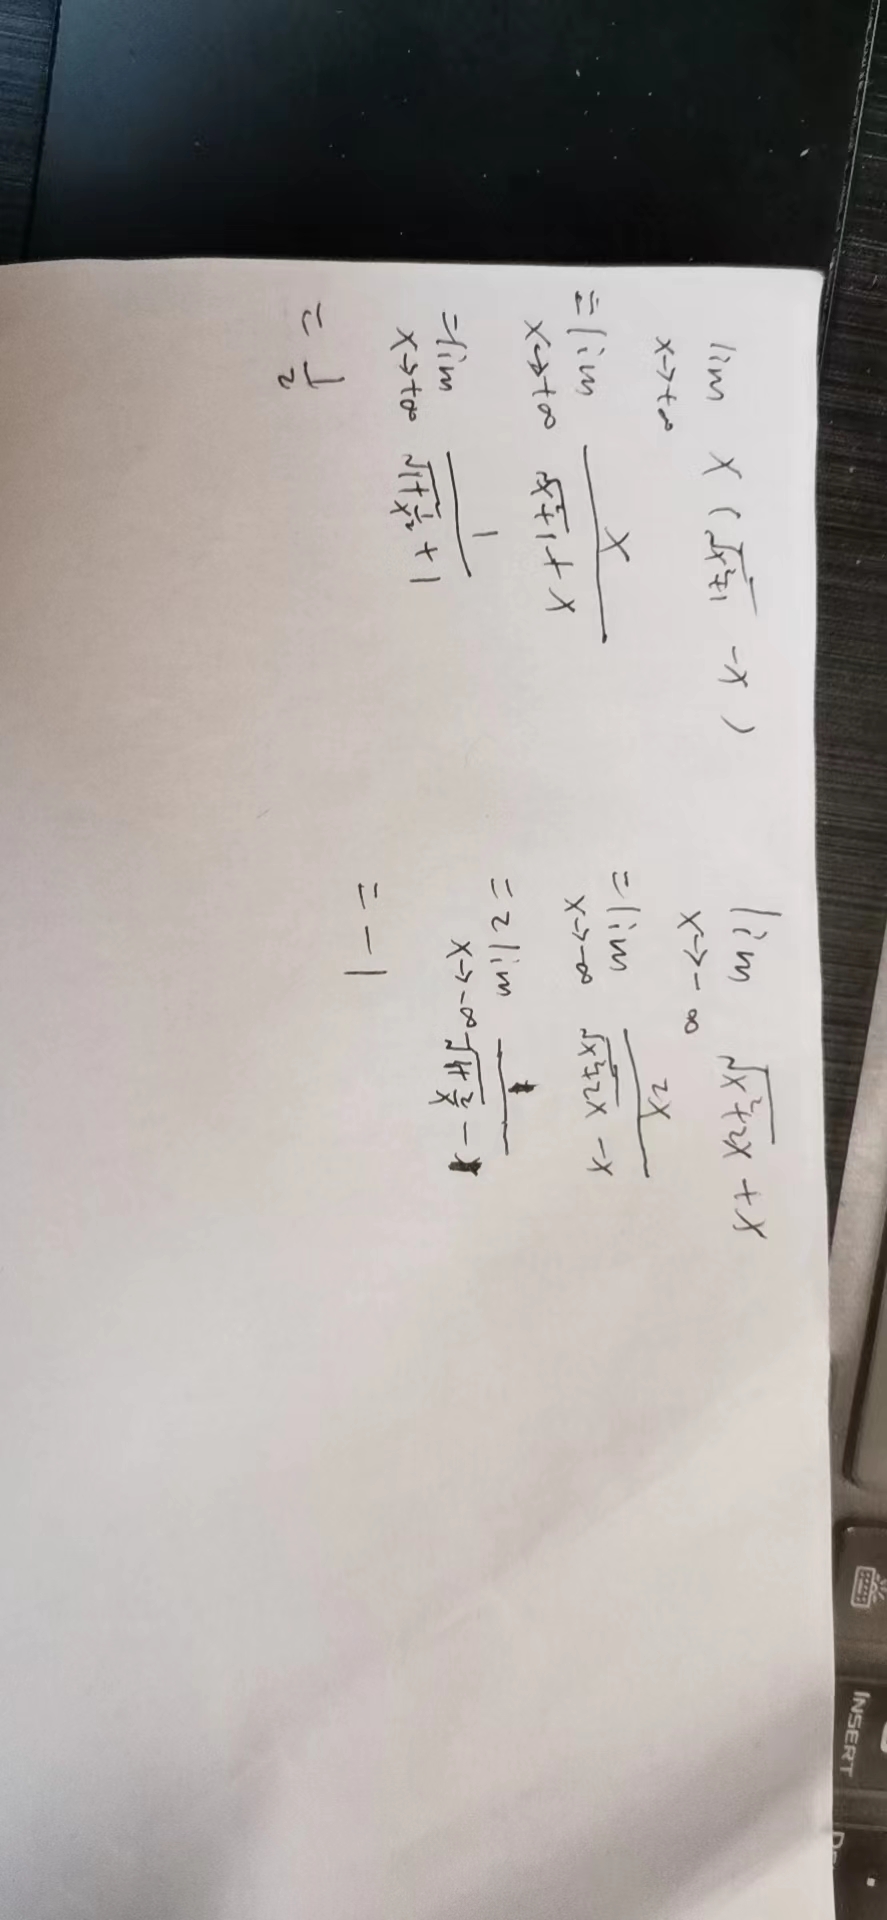 lim x→+∞ x(√(x²+1) - x)
= lim x→+∞ x/(√(x²+1) + x)
= lim x→+∞ 1/(√(1+1/x²) + 1)
= 1/2
lim x→-∞ √(x²+2x) + x
= lim x→-∞ 2x/(√(x²+2x) - x)
= 2 lim x→-∞ 1/(-√(1+2/x) - 1)
= -1
INSERT